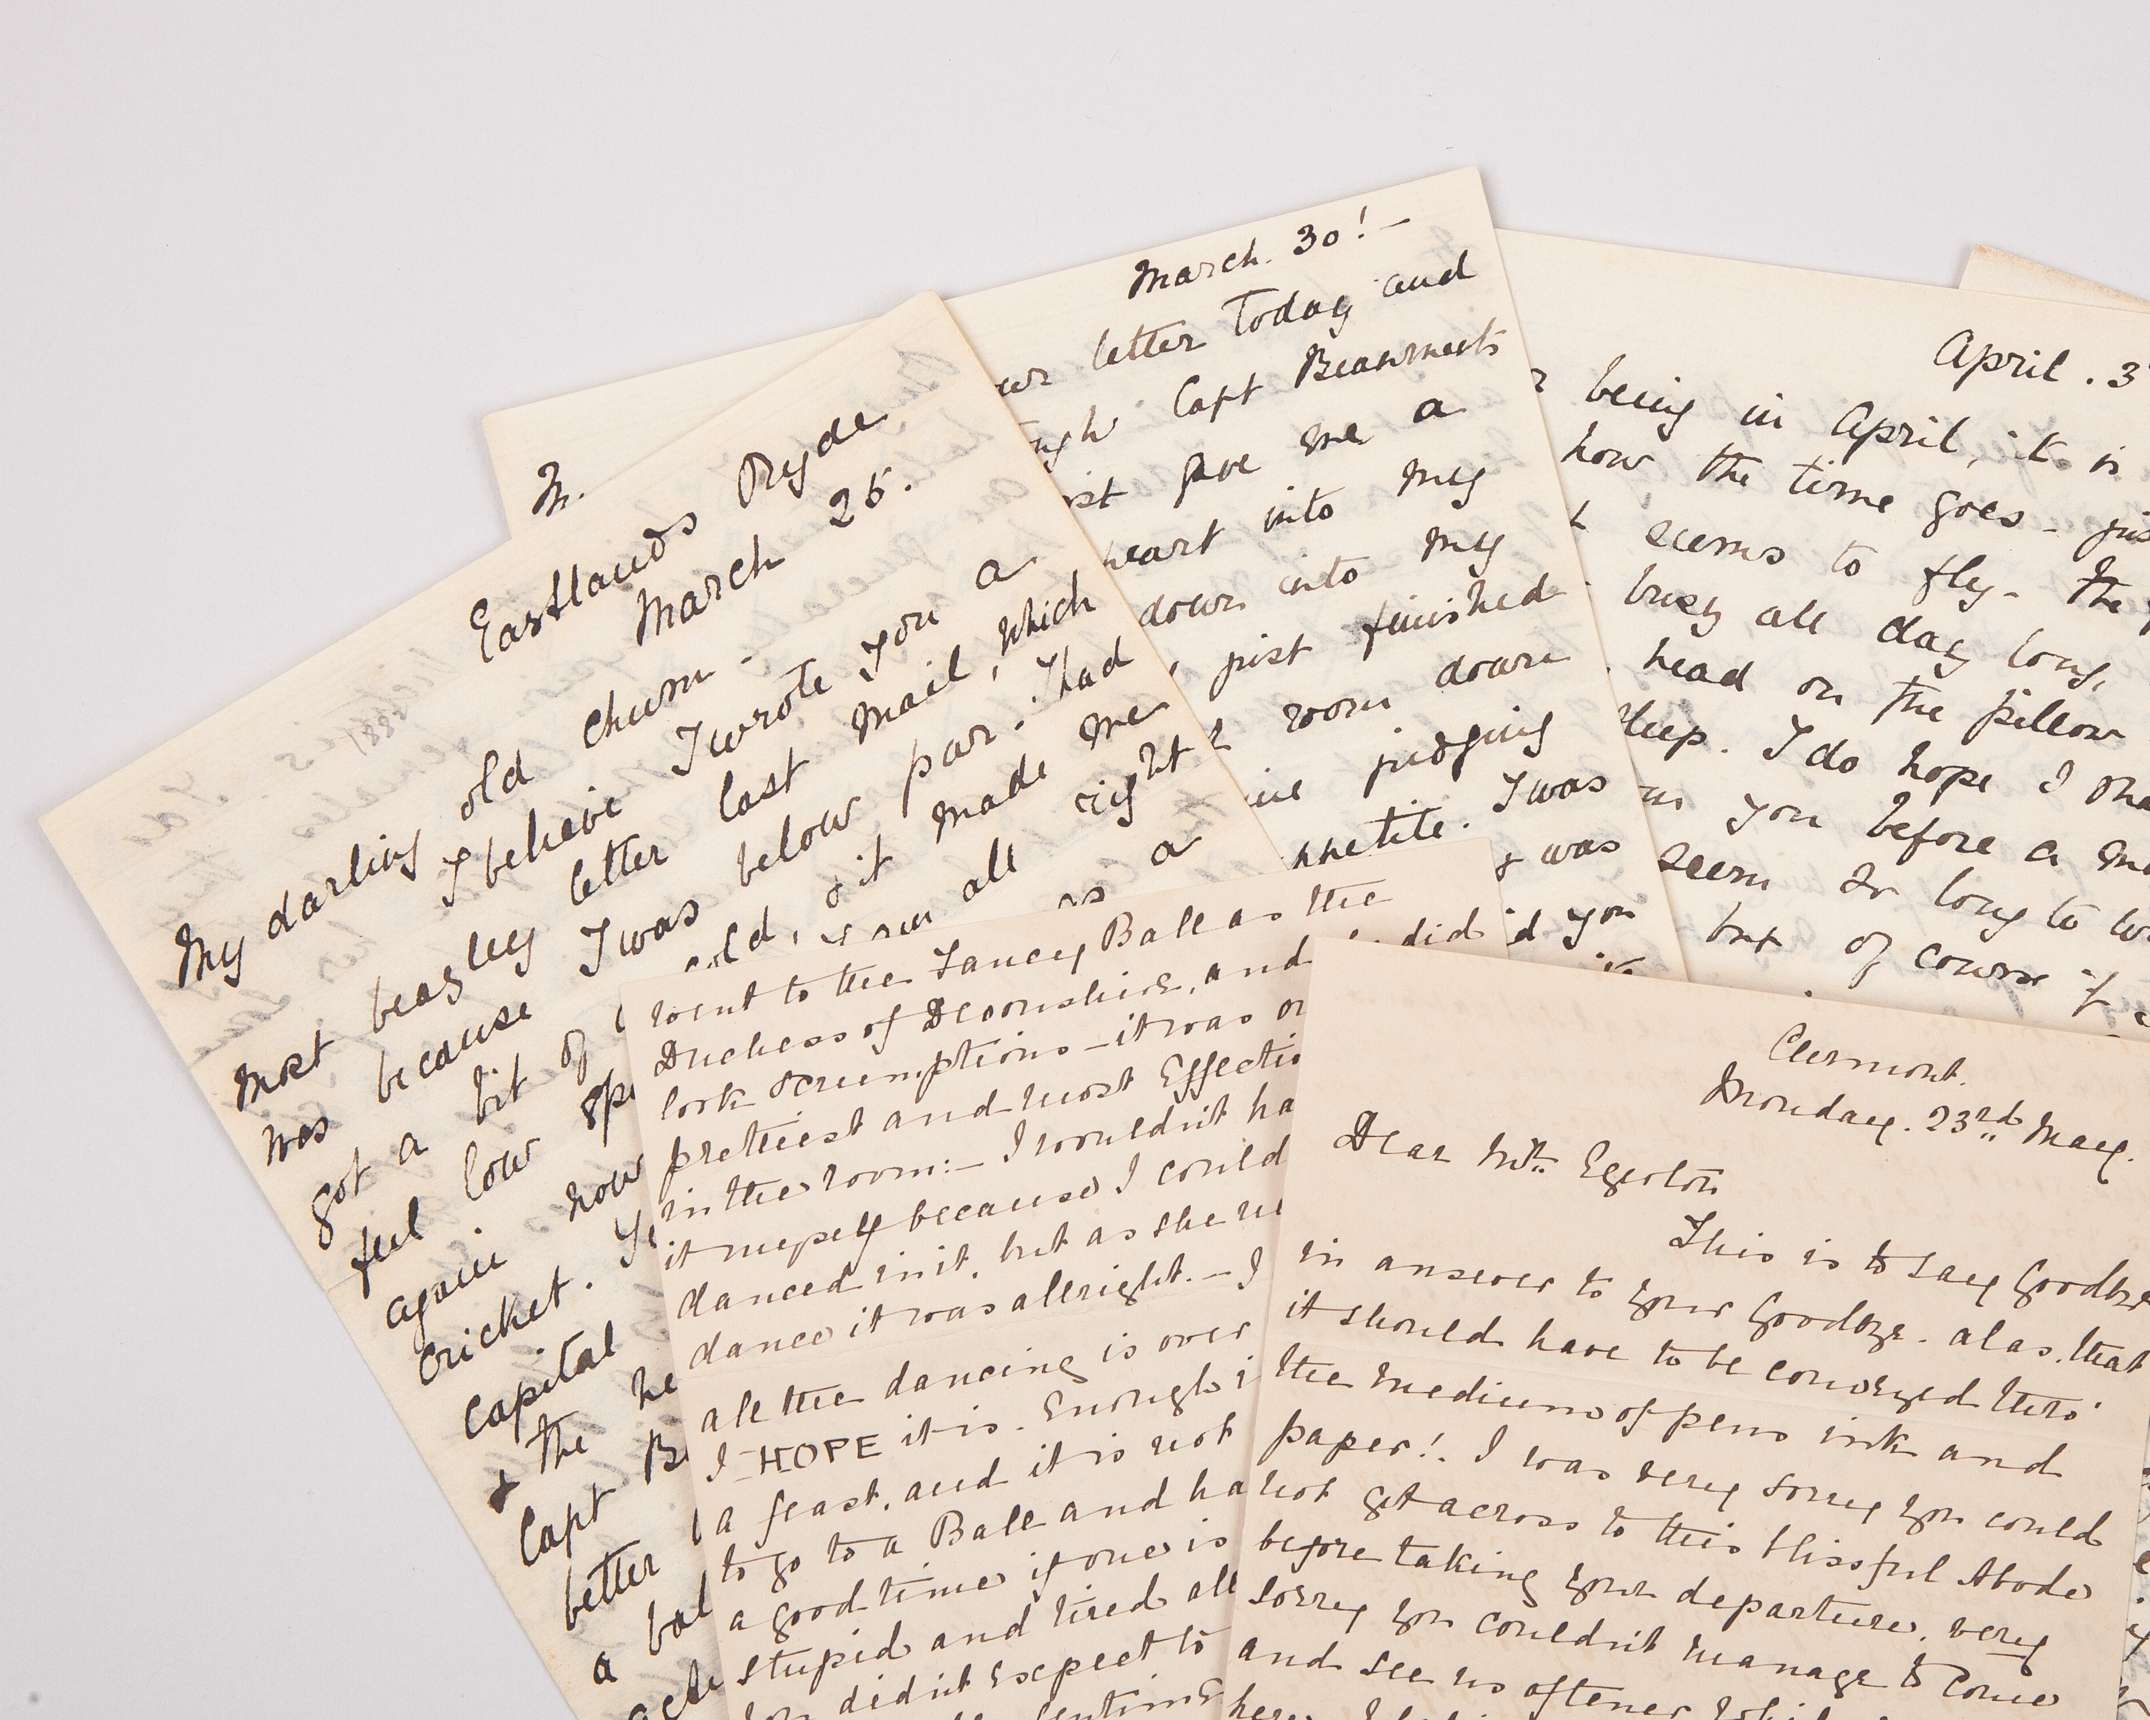 Eastlands Ryde
March 25.
My darling old chum -
I believe I wrote you a
most beastly letter last mail, which
was because I was below par: I had
got a bit of cold, & it made me
feel low spi
again now all right
cricket.
capital
& the he
Capt B
better
a bal
M.
March. 30! -
letter today and
Capt Beaumonts
gave me a
heart into my
down into my
, just finished
room down
judging
appetite. I was
& was
you
April. 3
being in April, it is
how the time goes - jus
seems to fly - The
busy all day long,
head on the pillow
sleep. I do hope I sha
you before a m
seem so long to
but of course if
went to the Fancy Ball as the
Duchess of Devonshire, and did
look scrumptious - it was
prettiest and most Effecti
in the room:- I wouldn't ha
it myself because I could
danced in it, but as she
dance it was allright. - I
all the dancing is over
I HOPE it is. Enough is
a feast, and it is not
to go to a Ball and ha
a good time if one is
stupid and tired all
didn't Expect to
Clermont.
Monday. 23rd May.
Dear Mr. Egerton
This is to say Goodbye
in answer to your Goodbye. alas. that
it should have to be conveyed thro'
the medium of pen ink and
paper!. I was very sorry you could
not get across to this blissful Abode
before taking your departure. very
sorry you couldn't manage to come
and see us oftener